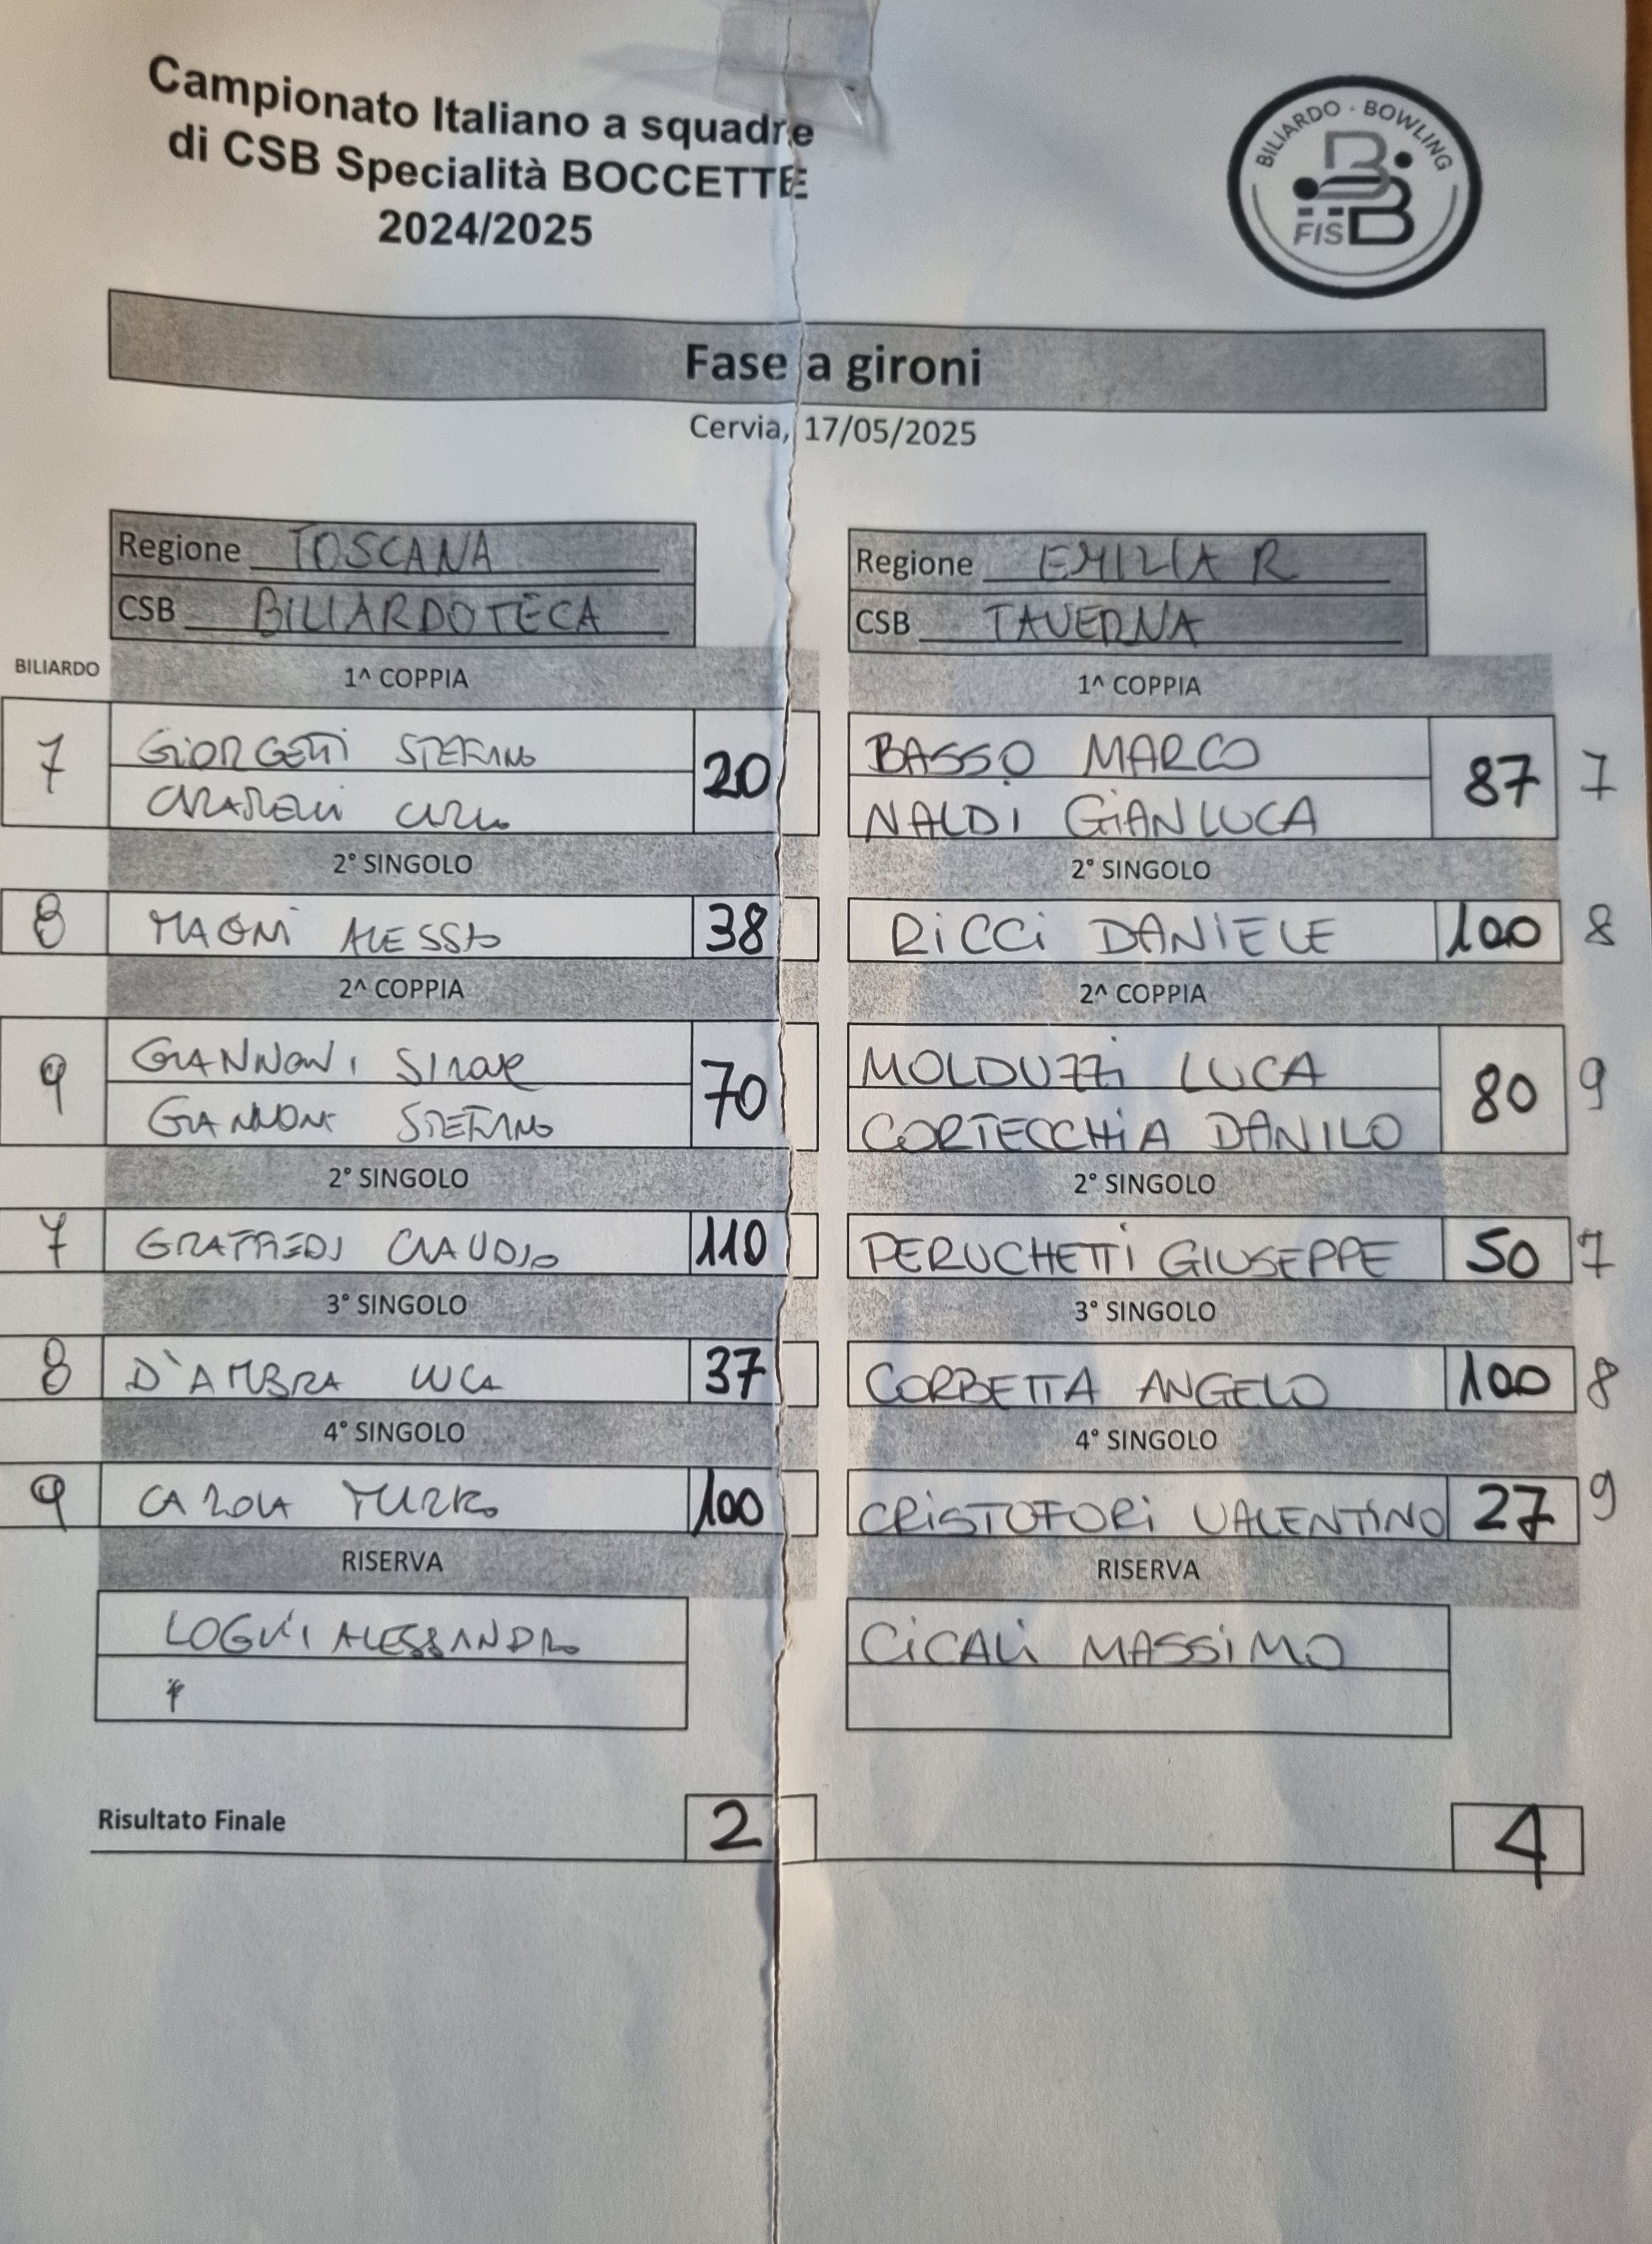 Campionato Italiano a squadre
di CSB Specialità BOCCETTE
2024/2025
BILIARDO · BOWLING
FISBB
Fase a gironi
Cervia, 17/05/2025
Regione TOSCANA
CSB BILIARDOTECA
Regione EMILIA R
CSB TAVERNA
BILIARDO
1^ COPPIA
1^ COPPIA
7 GIORGETTI STEFANO 20
BASSO MARCO 87 7
NALDI GIANLUCA
2° SINGOLO
2° SINGOLO
8 MAGNI ALESSIO 38
RICCI DANIELE 100 8
2^ COPPIA
2^ COPPIA
9 GIANNONI SIMONE 70
GIANNONI STEFANO
MOLDUZZI LUCA 80 9
CORTECCHIA DANILO
2° SINGOLO
2° SINGOLO
7 GRAFFREDI CLAUDIO 110
PERUCHETTI GIUSEPPE 50 7
3° SINGOLO
3° SINGOLO
8 D'AMBRA LUCA 37
CORBETTA ANGELO 100 8
4° SINGOLO
4° SINGOLO
9 100
CRISTOFORI VALENTINO 27 9
RISERVA
RISERVA
ALESSANDRO
CICALI MASSIMO
Risultato Finale 2
4